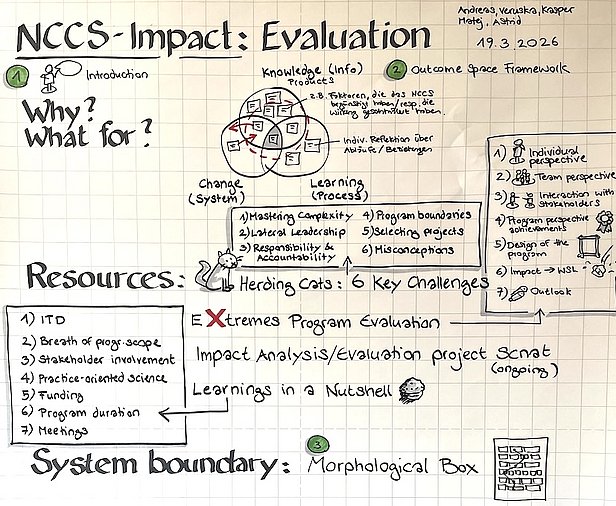 Andreas, Veruska, Kasper
Matej, Astrid
19.3.2026
NCCS-Impact: Evaluation
1 Introduction
Why?
What for?
Knowledge (Info)
Products
z.B. Faktoren, die das NCCS
begünstigt haben/resp. die
Wirkung geschmälert haben.
Indiv. Reflektion über
Abläufe/Beziehungen
Change
(System)
Learning
(Process)
2 Outcome Space Framework
1) Individual
perspective
2) Team perspective
3) Interaction with
stakeholders
4) Program perspective
achievements
5) Design of the
program
6) Impact → WSL
7) Outlook
1) Mastering Complexity
2) Lateral Leadership
3) Responsibility &
Accountability
4) Program boundaries
5) Selecting projects
6) Misconceptions
Resources:
Herding Cats: 6 Key Challenges
EXtremes Program Evaluation
Impact Analysis/Evaluation project Scnat
(ongoing)
Learnings in a Nutshell
1) ITD
2) Breath of progr. scope
3) Stakeholder involvement
4) Practice-oriented science
5) Funding
6) Program duration
7) Meetings
System boundary:
3 Morphological Box